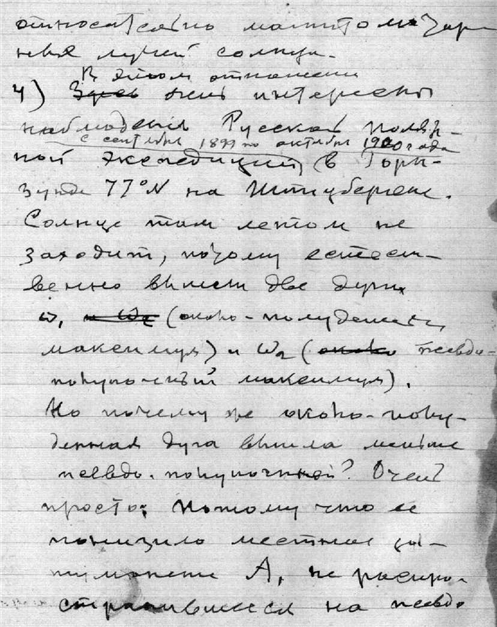 относительно магнитомазар-
ных лучей солнца.
В этом отношении
4) Здесь очень интересны
наблюдения Русской поляр-
с сентября 1899 по октября 1900 года
ной экспедиции в Горн-
зунде 77°N на Шпицбергене.
Солнце там летом не
заходит, потому естест-
венно вышли две дуги
ω, и ω₂ (около-полуденный
максимум) и ω₂ (около псевдо-
полуночный максимум).
Но почему же около-полу-
денная дуга вышла меньше
псевдо-полуночной? Очень
просто: потому что ее
понизило местное
А, не распро-
странившееся на псевдо